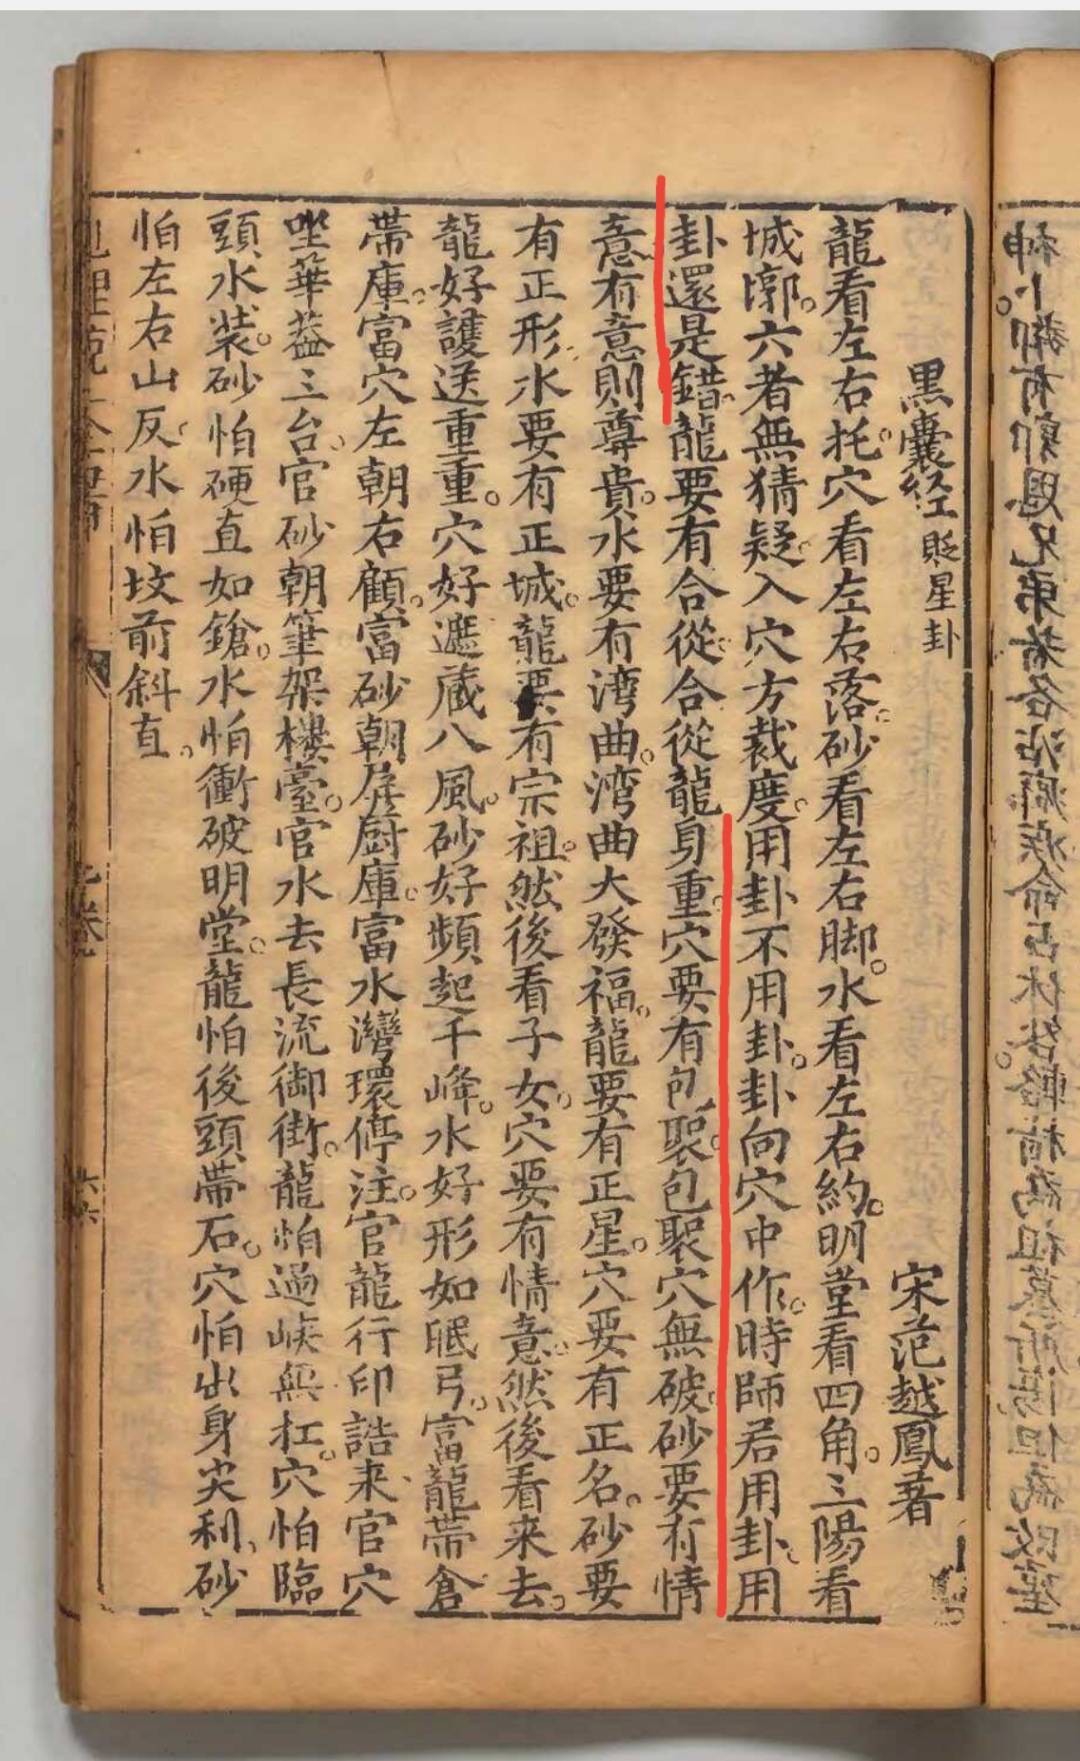 黑囊経 貶星卦
宋范越鳳著
龍看左右托。穴看左右落。砂看左右脚。水看左右約。明堂看四角。三陽看
城廓。六者無猜疑。入穴方裁度。用卦不用卦。卦向穴中作。時師若用卦。用
卦還是錯。龍要有合從。合從龍身重。穴要有包聚。包聚穴無破。砂要有情
意。有意則尊貴。水要有湾曲。湾曲大發福。龍要有正星。穴要有正名。砂要
有正形。水要有正城。龍要有宗祖。然後看子女。穴要有情意。然後看来去。
龍好護送重重。穴好遮蔵八風。砂好頻起千峰。水好形如眠弓。富龍帶倉
帶庫。富穴左朝右顧。富砂朝屏厨庫。富水灣環停注。官龍行印誥来。官穴
坐華葢三台。官砂朝筆架樓臺。官水去長流御街。龍怕過峽無杠。穴怕臨
頭水装。砂怕硬直如鎗。水怕衝破明堂。龍怕後頭帶石。穴怕出身尖利。砂
怕左右山反。水怕坟前斜直。